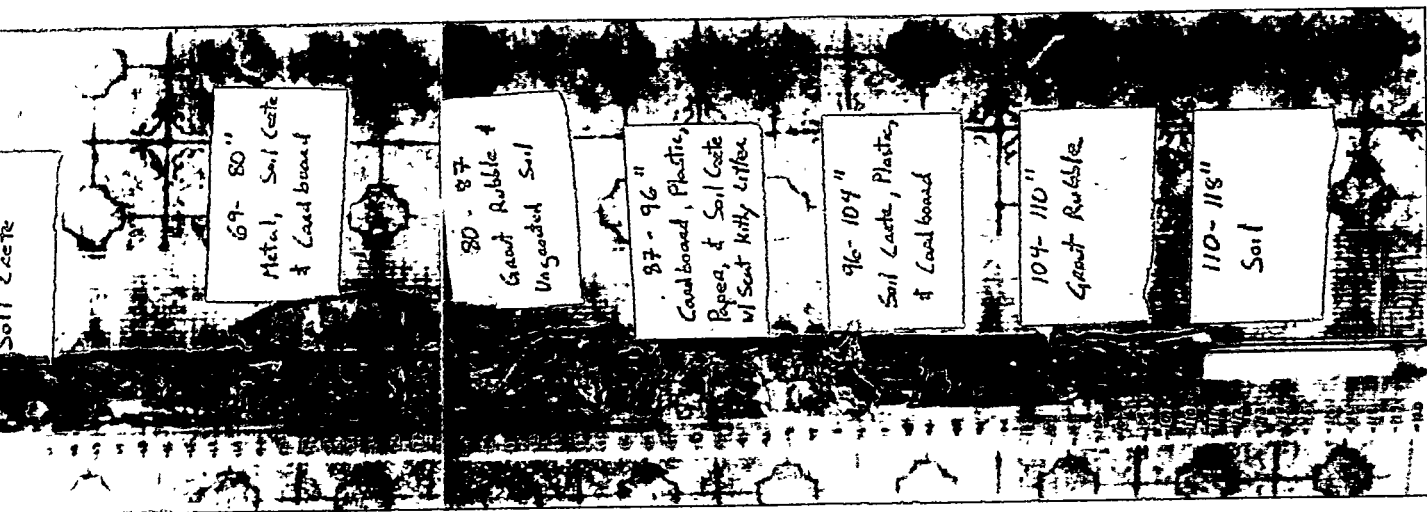 Soil Crete
69- 80"
Metal, Soil Crete
& Cardboard
80 - 87
Grout Rubble &
Ungrouted Soil
87 - 96"
Cardboard, Plastic,
Paper, & Soil Crete
w/ Scat kitty litter
96- 104"
Soil Crete, Plastic,
& Cardboard
104- 110"
Grout Rubble
110- 118"
Soil